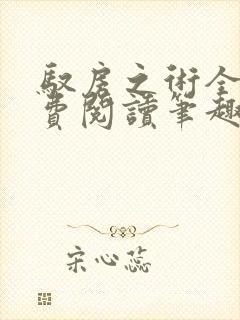 馭房之術全
費閱讀筆趣
宋心蕊